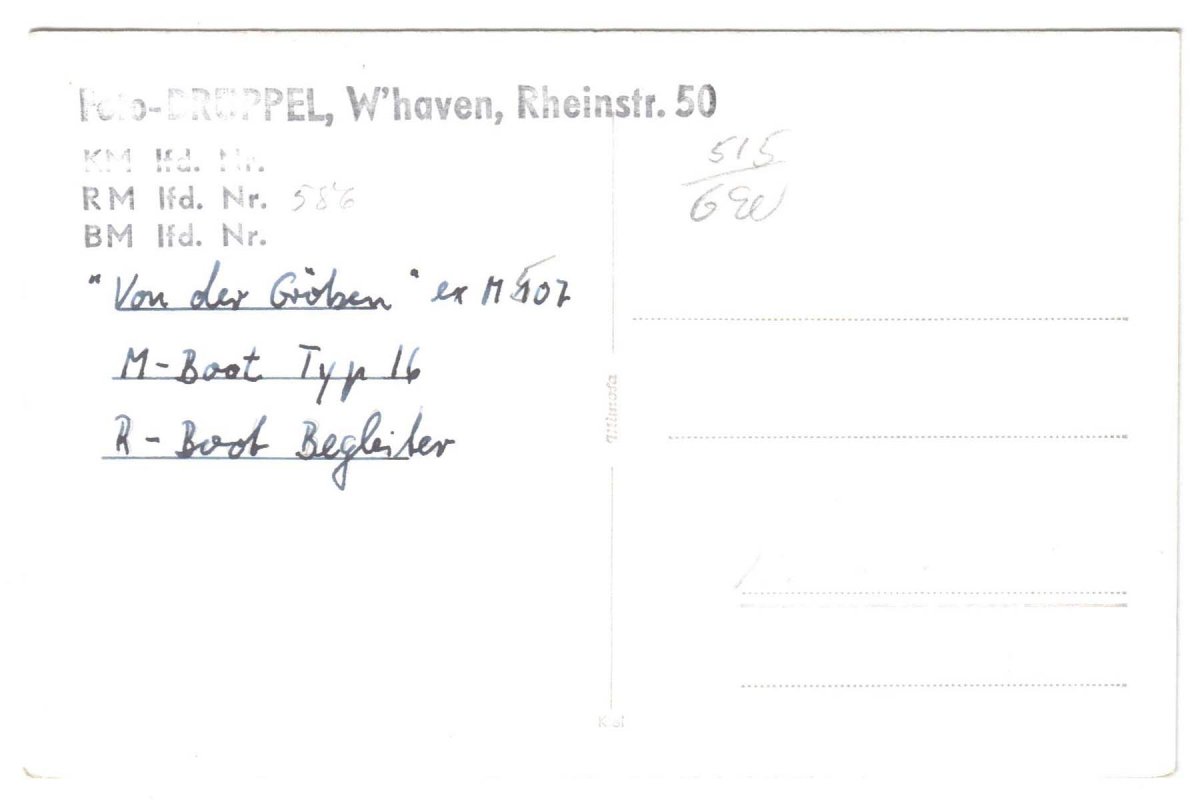 Foto-DRÜPPEL, W'haven, Rheinstr. 50
KM lfd. Nr.
RM lfd. Nr. 586
BM lfd. Nr.
"Von der Gröben" ex M 107
M-Boot Typ 16
R-Boot Begleiter
515
Mimosa